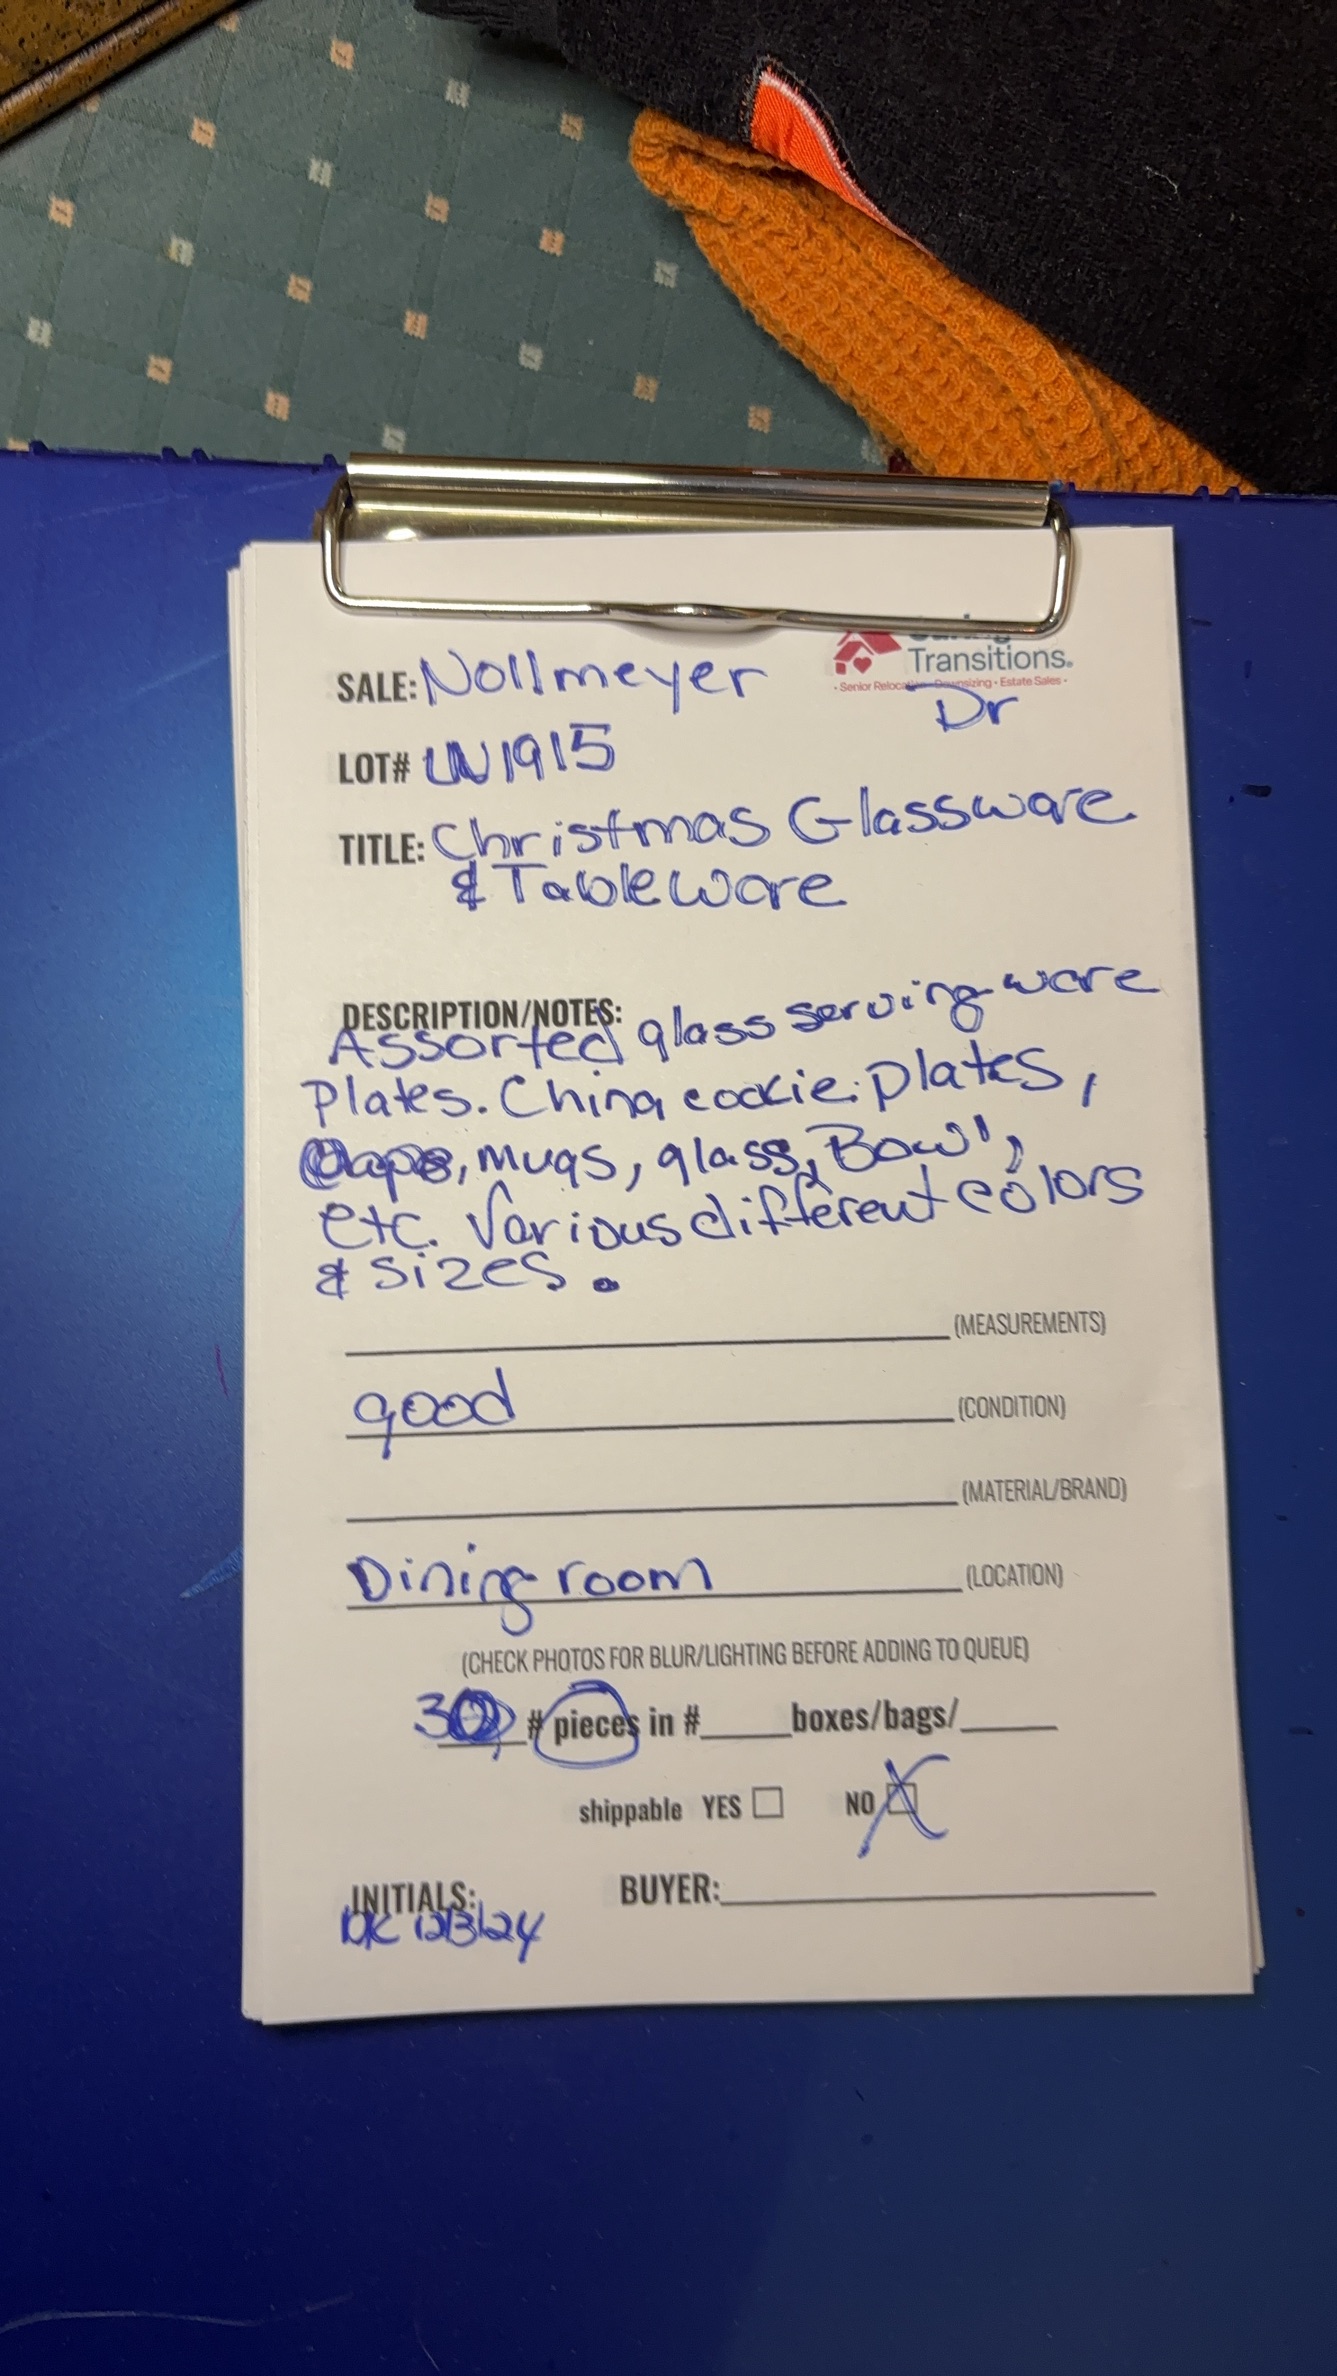 Transitions®
• Senior Relocation • Downsizing • Estate Sales •
SALE: Nollmeyer
Dr
LOT# LN1915
TITLE: Christmas Glassware
& Tableware
DESCRIPTION/NOTES:
Assorted glass serving ware
Plates. China cookie plates,
, mugs, glass, Bowl,
etc. Various different colors
& sizes.
(MEASUREMENTS)
good (CONDITION)
(MATERIAL/BRAND)
Dining room (LOCATION)
(CHECK PHOTOS FOR BLUR/LIGHTING BEFORE ADDING TO QUEUE)
30 # pieces in # boxes/bags/
shippable YES NO X
INITIALS: BUYER:
DK 12/3/24